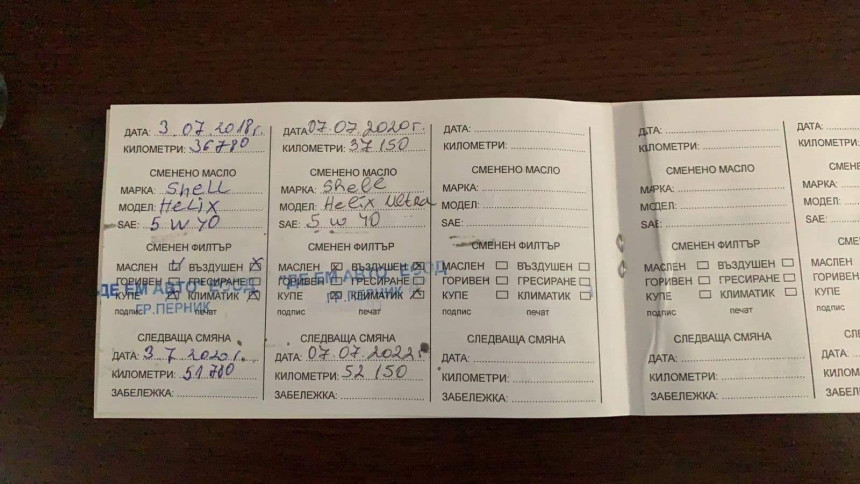 ДАТА: 3.07.2018г.
КИЛОМЕТРИ: 36780
СМЕНЕНО МАСЛО
МАРКА: Shell
МОДЕЛ: Helix
SAE: 5 W 40
СМЕНЕН ФИЛТЪР
МАСЛЕН ВЪЗДУШЕН
ГОРИВЕН ГРЕСИРАНЕ
КУПЕ КЛИМАТИК
подпис печат
"ДЕ ЕМ АВТО" ЕООД
ГР. ПЕРНИК
СЛЕДВАЩА СМЯНА
ДАТА: 3.7.2020г.
КИЛОМЕТРИ: 51780
ЗАБЕЛЕЖКА:
ДАТА: 07.07.2020г.
КИЛОМЕТРИ: 37150
СМЕНЕНО МАСЛО
МАРКА: Shell
МОДЕЛ: Helix Ultra
SAE: 5 W 40
СМЕНЕН ФИЛТЪР
МАСЛЕН ВЪЗДУШЕН
ГОРИВЕН ГРЕСИРАНЕ
КУПЕ КЛИМАТИК
подпис печат
"ДЕ ЕМ АВТО" ЕООД
ГР. ПЕРНИК
СЛЕДВАЩА СМЯНА
ДАТА: 07.07.2022г
КИЛОМЕТРИ: 52150
ЗАБЕЛЕЖКА:
ДАТА:
КИЛОМЕТРИ:
СМЕНЕНО МАСЛО
МАРКА:
МОДЕЛ:
SAE:
СМЕНЕН ФИЛТЪР
МАСЛЕН ВЪЗДУШЕН
ГОРИВЕН ГРЕСИРАНЕ
КУПЕ КЛИМАТИК
подпис печат
СЛЕДВАЩА СМЯНА
ДАТА:
КИЛОМЕТРИ:
ЗАБЕЛЕЖКА:
ДАТА:
КИЛОМЕТРИ:
СМЕНЕНО МАСЛО
МАРКА:
МОДЕЛ:
SAE:
СМЕНЕН ФИЛТЪР
МАСЛЕН ВЪЗДУШЕН
ГОРИВЕН ГРЕСИРАНЕ
КУПЕ КЛИМАТИК
подпис печат
СЛЕДВАЩА СМЯНА
ДАТА:
КИЛОМЕТРИ:
ЗАБЕЛЕЖКА:
ДАТА:
КИЛОМЕТРИ
МАРКА:
МОДЕЛ:
SAE:
МАСЛЕН
ГОРИВЕН
КУПЕ
подпис
ДАТА